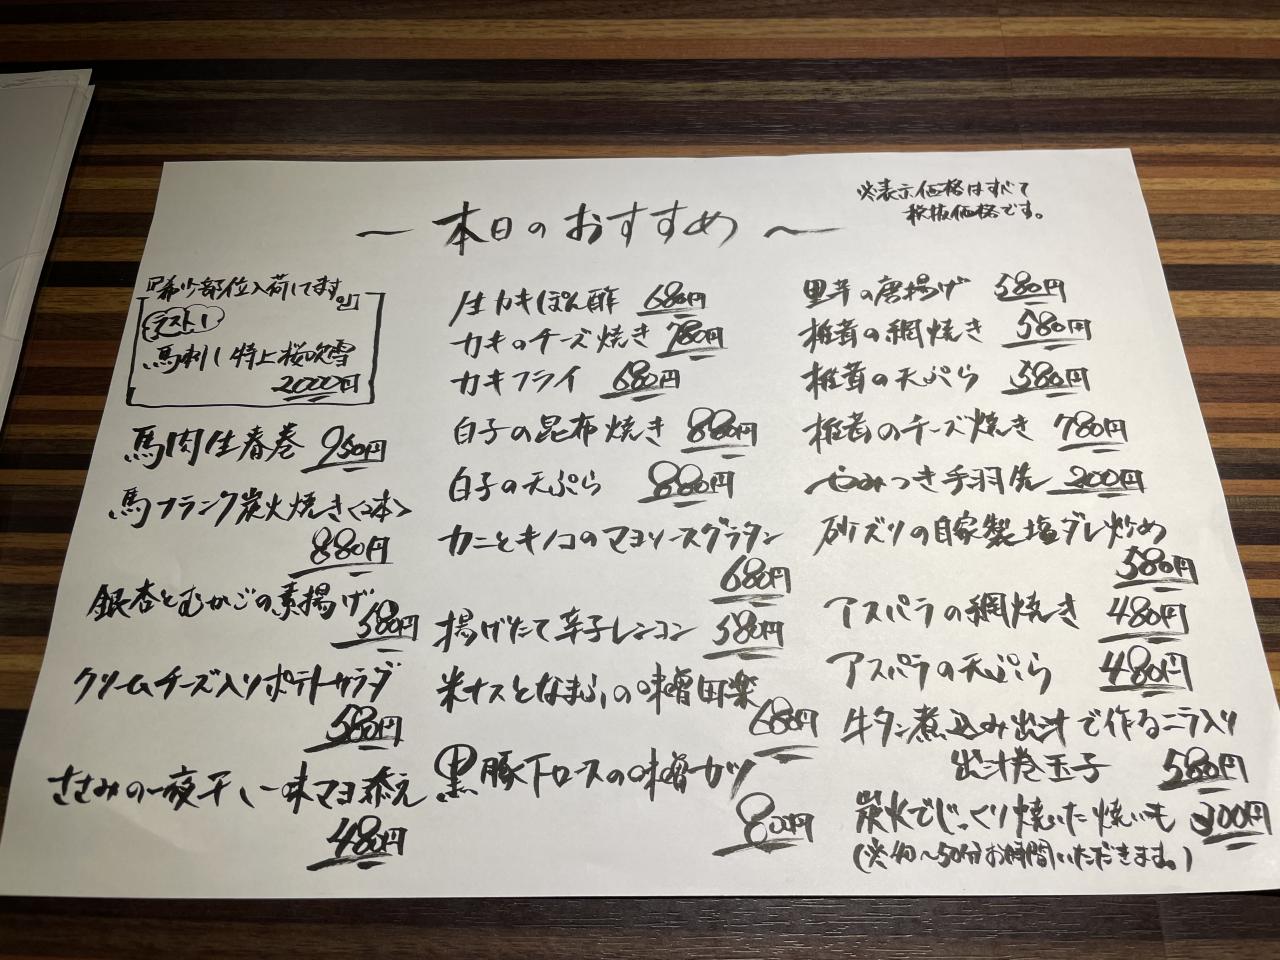 〜 本日のおすすめ 〜
※表示価格はすべて
税抜価格です。
『希少部位入荷してます。』
ラスト1
馬刺し特上桜吹雪
2000円
馬肉生春巻 950円
馬フランク炭火焼き<2本>
880円
銀杏とむかごの素揚げ
580円
クリームチーズ入りポテトサラダ
580円
ささみの一夜干し 一味マヨ添え
480円
生カキぽん酢 680円
カキのチーズ焼き 780円
カキフライ 680円
白子の昆布焼き 880円
白子の天ぷら 880円
カニとキノコのマヨソースグラタン
680円
揚げたて辛子レンコン 580円
米ナスとなまふの味噌田楽
680円
黒豚下ロースの味噌カツ
800円
里芋の唐揚げ 580円
椎茸の網焼き 580円
椎茸の天ぷら 580円
椎茸のチーズ焼き 780円
やみつき手羽先 200円
砂ズリの自家製塩ダレ炒め
580円
アスパラの網焼き 480円
アスパラの天ぷら 480円
牛タン煮込み出汁で作るニラ入り
出汁巻玉子 580円
炭火でじっくり焼いた焼いも 300円
(※40〜50分お時間いただきます。)